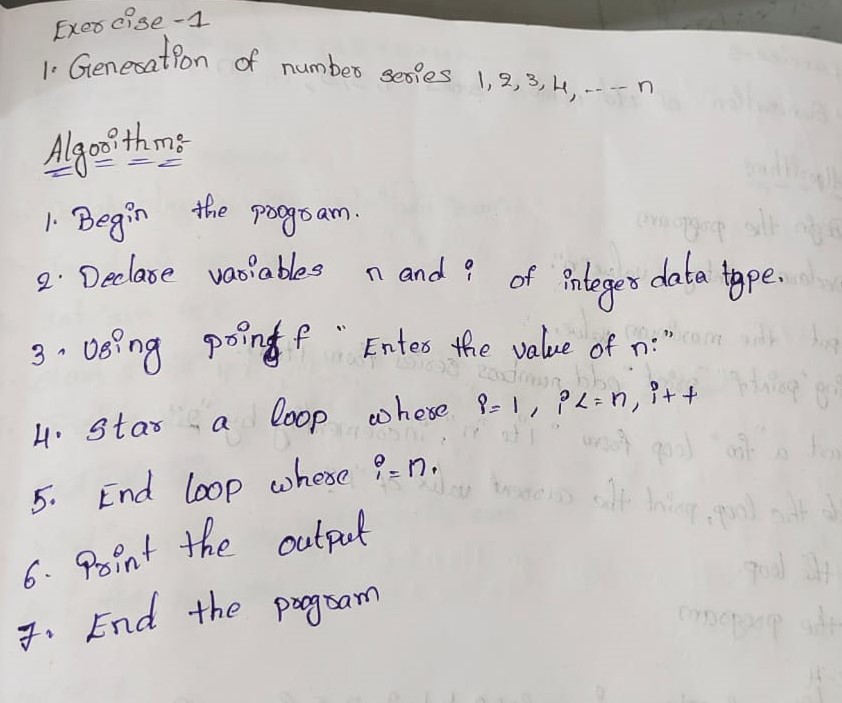 Exercise - 1
1. Generation of number series 1, 2, 3, 4, ---- n
Algorithm:-
1. Begin the program.
2. Declare variables n and i of integer data type.
3. Using printf " Enter the value of n:"
4. Star a loop where i=1, i<=n, i++
5. End loop where i=n.
6. Print the output
7. End the program